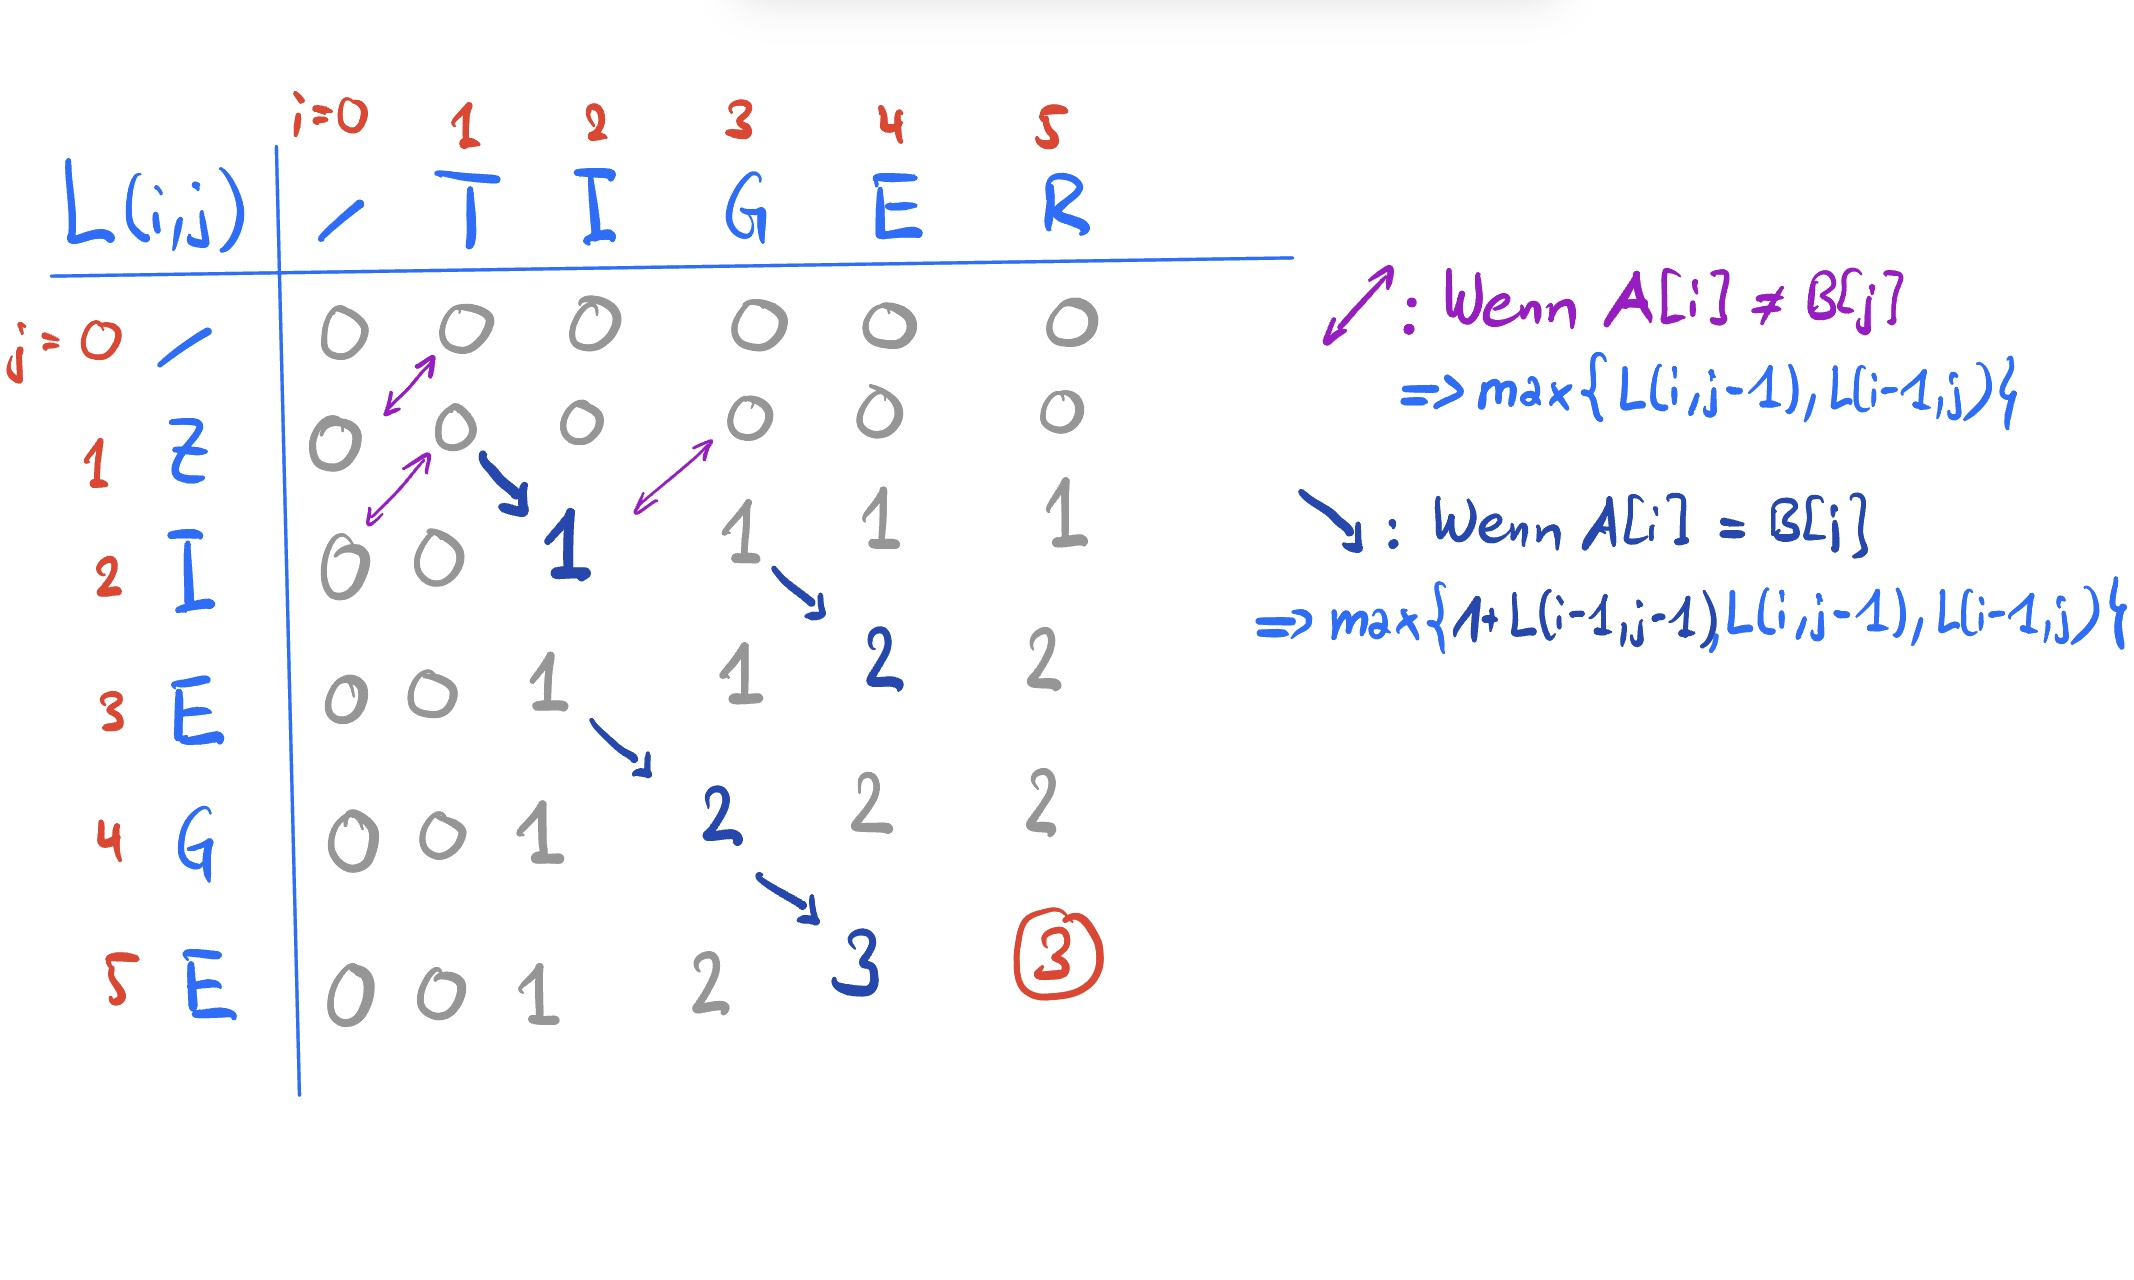 i=0 1 2 3 4 5
L(i,j) / T I G E R
j=0 / 0 0 0 0 0 0
1 Z 0 0 0 0 0 0
2 I 0 0 1 1 1 1
3 E 0 0 1 1 2 2
4 G 0 0 1 2 2 2
5 E 0 0 1 2 3 3
: Wenn A[i] ≠ B[j]
=> max{L(i,j-1), L(i-1,j)}
: Wenn A[i] = B[j]
=> max{1+L(i-1,j-1), L(i,j-1), L(i-1,j)}